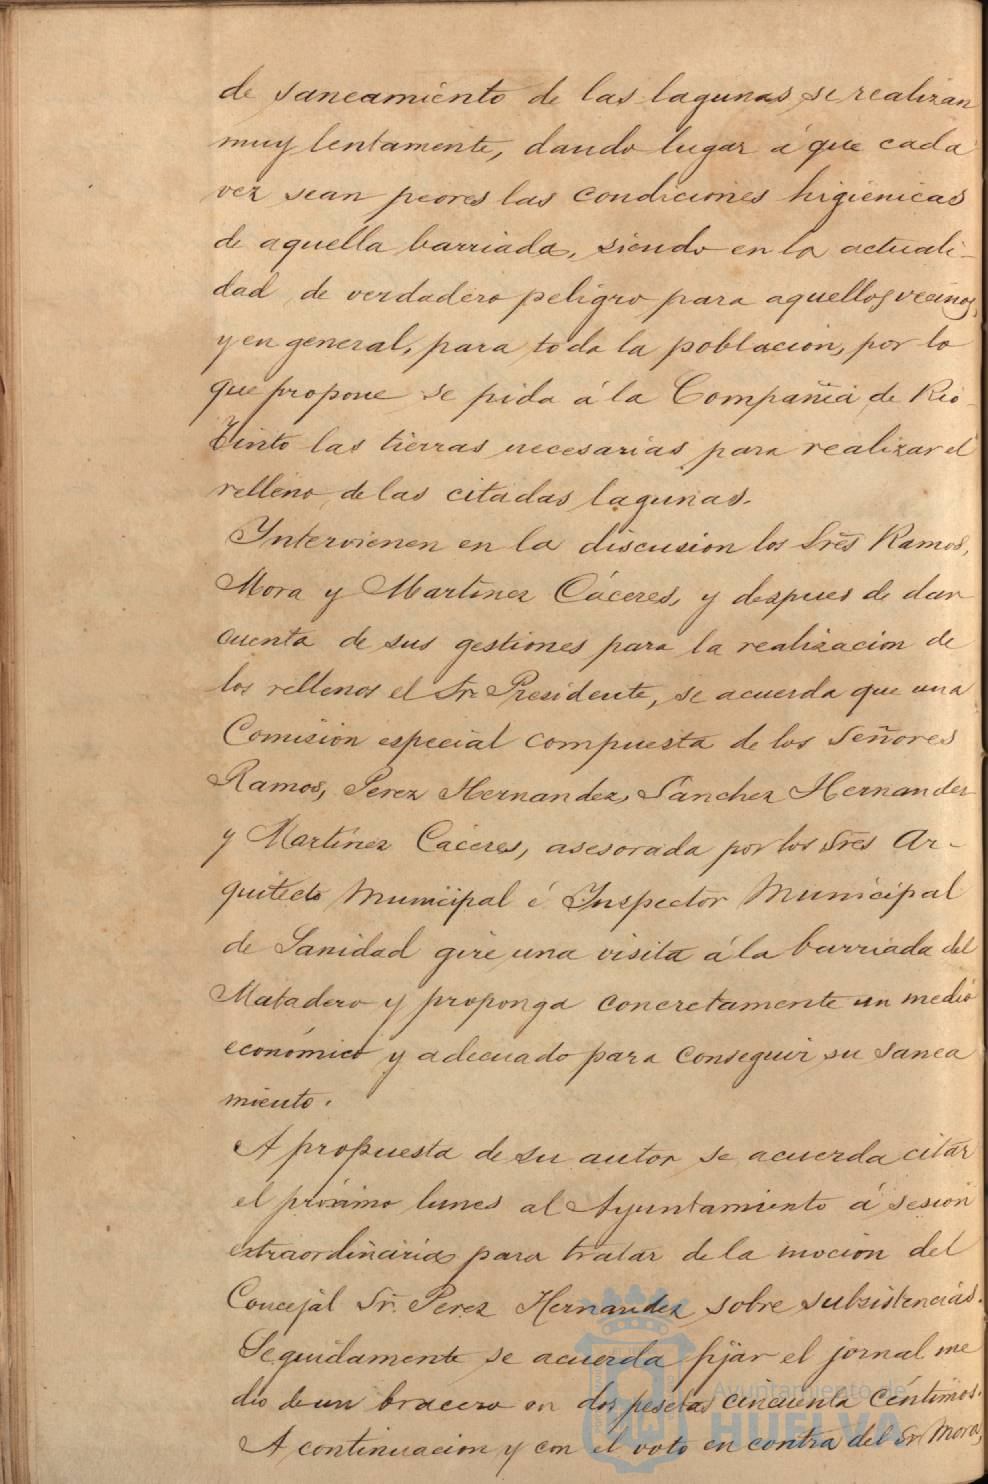 de saneamiento de las lagunas se realizan
muy lentamente, dando lugar á que cada
vez sean peores las condiciones higiénicas
de aquella barriada, siendo en la actuali-
dad de verdadero peligro para aquellos vecinos,
y en general, para toda la poblacion, por lo
que propone se pida á la Compañia de Rio-
Tinto las tierras necesarias para realizar el
relleno de las citadas lagunas.
Intervienen en la discusion los Sres Ramos,
Mora y Martinez Cáceres, y despues de dar
cuenta de sus gestiones para la realizacion de
los rellenos el Sr. Presidente, se acuerda que una
Comision especial compuesta de los Señores
Ramos, Perez Hernandez, Sanchez Hernandez
y Martínez Cáceres, asesorada por los Sres Ar-
quitecto Municipal é Inspector Municipal
de Sanidad gire una visita á la barriada del
Matadero y proponga concretamente un medio
económico y adecuado para conseguir su sanea
miento.
A propuesta de su autor se acuerda citar
el próximo lunes al Ayuntamiento á sesion
extraordinaria para tratar de la mocion del
Concejal Sr. Perez Hernandez sobre subsistencias.
Seguidamente se acuerda fijar el jornal me
dio de un bracero en dos pesetas cincuenta céntimos.
A continuacion y con el voto en contra del Sr Mora,
Ayuntamiento de
HUELVA